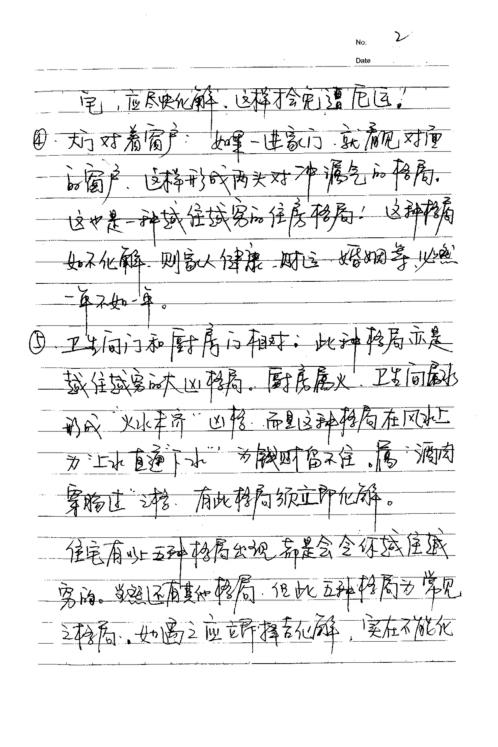 No. 2
Date
宅，应尽快化解，这样才会免遭厄运！
④ 大门对着窗户：如果一进家门，就看见对面
的窗户，这样形成两头对冲漏气的格局。
这也是一种越住越穷的住房格局！这种格局
如不化解，则家人健康、财运、婚姻等，必然
一年不如一年。
⑤ 卫生间门和厨房门相对：此种格局亦是
越住越穷的大凶格局。厨房属火，卫生间属水
形成“火水未济”凶格，而且这种格局在风水上
为“上水直通下水”为钱财留不住，属“酒肉
穿肠过”之格，有此格局须立即化解。
住宅有以上五种格局出现，都是会令你越住越
穷的。当然还有其他格局，但此五种格局为常见
之格局，如遇之应立即择吉化解，实在不能化